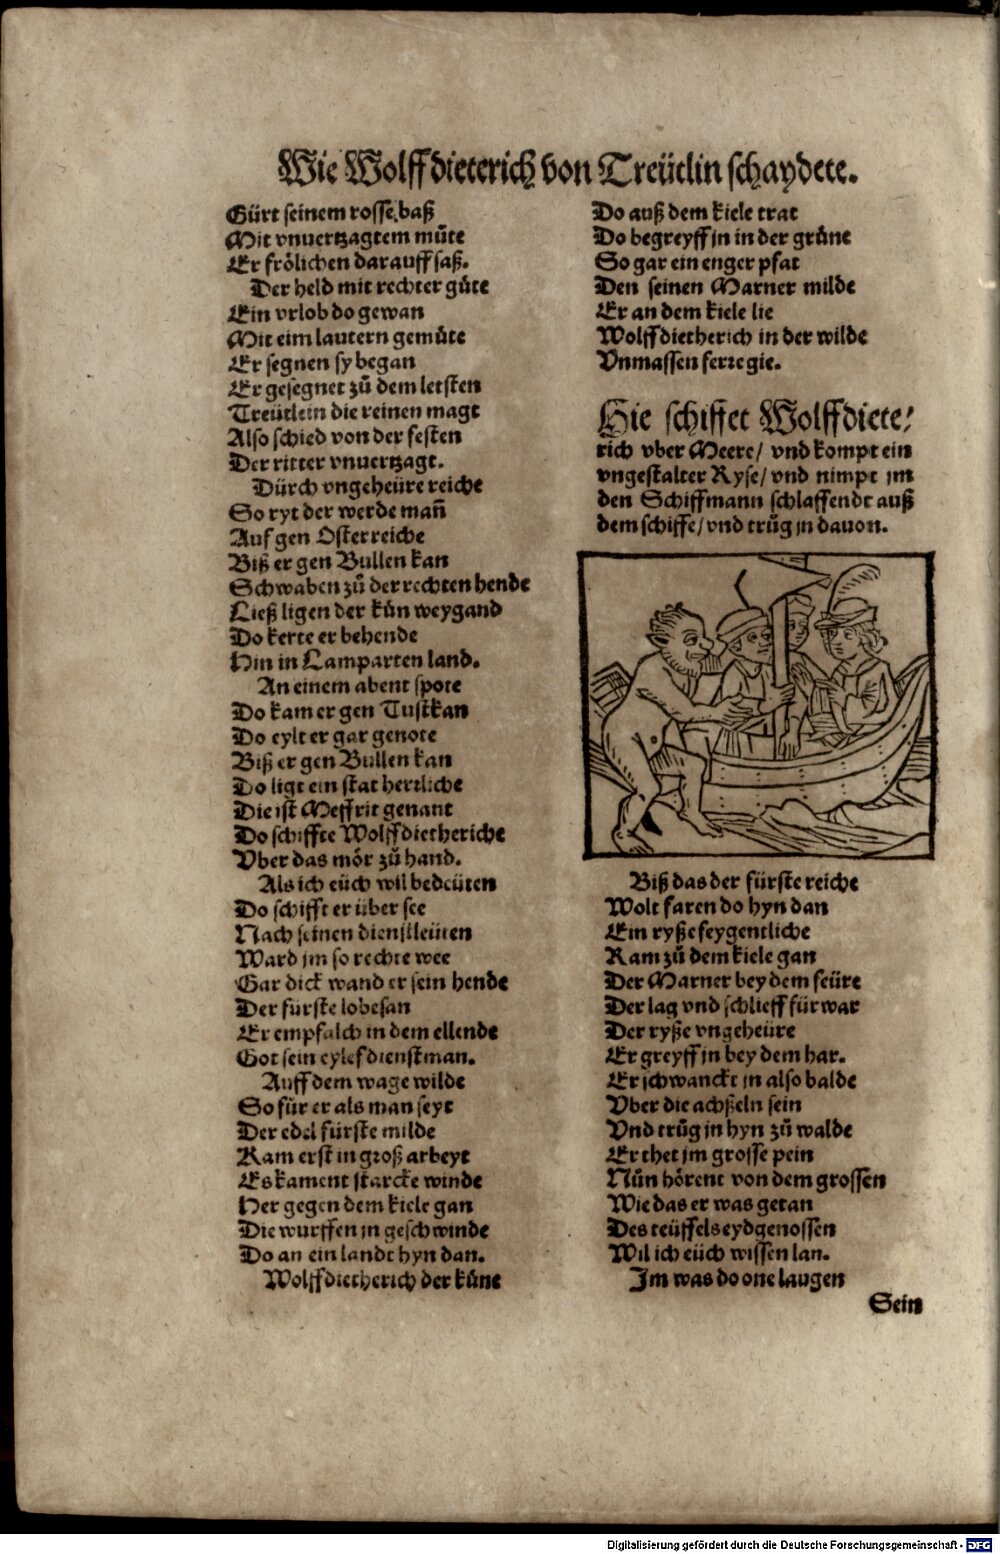 Wie Wolffdieterich von Treütlin schaydete.
Gürt seinem rosse baß
Mit vnuertzagtem můte
Er frölichen darauff saß.
Der held mit rechter güte
Ein vrlob do gewan
Mit eim lautern gemůte
Er segnen sy began
Er gesegnet zů dem letsten
Treütlein die reinen magt
Also schied von der festen
Der ritter vnuertzagt.
Dürch vngeheüre reiche
So ryt der werde mañ
Auf gen Osterreiche
Biß er gen Bullen kan
Schwaben zů der rechten hende
Ließ ligen der kůn weygand
Do kerte er behende
Hin in Lamparten land.
An einem abent spote
Do kam er gen Tustkan
Do eylt er gar genote
Biß er gen Bullen kan
Do ligt ein stat herrliche
Die ist Meffrit genant
Do schiffte Wolffdietheriche
Vber das mör zů hand.
Als ich eüch wil bedeüten
Do schifft er über see
Nach seinen dienstleüten
Ward jm so rechte wee
Gar dick wand er sein hende
Der fürste lobesan
Er empfalch in dem ellende
Got sein eylef dienstman.
Auff dem wage wilde
So für er als man seyt
Der edel fürste milde
Kam erst in groß arbeyt
Es kament starcke winde
Her gegen dem kiele gan
Die wurffen jn geschwinde
Do an ein landt hyn dan.
Wolffdietherich der kůne
Do auß dem kiele trat
Do begreyff jn in der grůne
So gar ein enger pfat
Den seinen Marner milde
Er an dem kiele lie
Wolffdietherich in der wilde
Vnmassen ferre gie.
Hie schiffet Wolffdiete/
rich vber Meere/ vnd kompt ein
vngestalter Ryse/ vnd nimpt jm
den Schiffmann schlaffendt auß
dem schiffe/ vnd trůg jn dauon.
Biß das der fürste reiche
Wolt faren do hyn dan
Ein ryße feygentliche
Kam zů dem kiele gan
Der Marner bey dem feüre
Der lag vnd schlieff fürwar
Der ryße vngeheüre
Er greyff jn bey dem har.
Er schwanckt jn also balde
Vber die achßeln sein
Vnd trůg jn hyn zů walde
Er thet jm grosse pein
Nůn hörent von dem grossen
Wie das er was getan
Des teüffels eydgenossen
Wil ich eüch wissen lan.
Jm was do one laugen
Sein
Digitalisierung gefördert durch die Deutsche Forschungsgemeinschaft - DFG